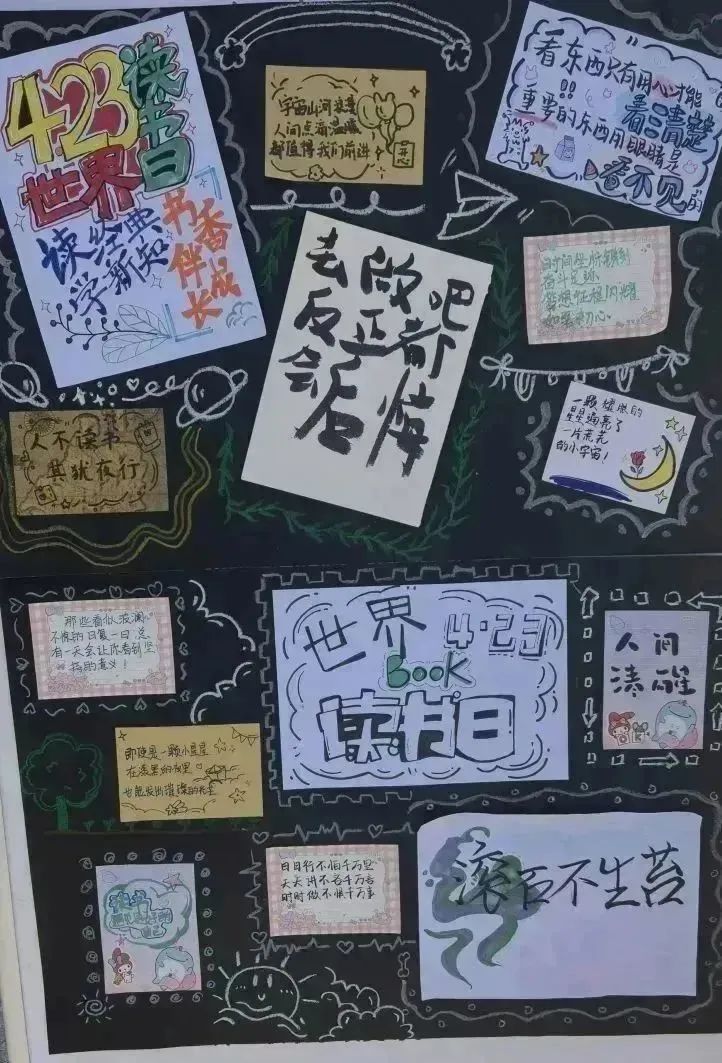 4·23读书日
世界
读经典
学新知
书香
伴成
长
宇宙山河浪漫
人间点滴温暖
都值得我们前进
开心
看东西只有用心才能
看清楚
重要的东西用眼睛是
看不见的
去做吧
反正都
会后悔
时间会沂
奋斗足迹
征程闪耀
初心
一颗
星星
一片荒芜
的小宇宙!
人不读书
其犹夜行
那些看似波澜
不惊的日复一日总
有一天会让你看到坚
持的意义!
世界 4·23
BOOK
读书日
人间
清醒
即使是一颗小星星
在漆黑的夜里
也能发出璀璨的光芒
日日行不怕千万里
天天讲不吝千万言
时时做不惧千万事
滚石不生苔